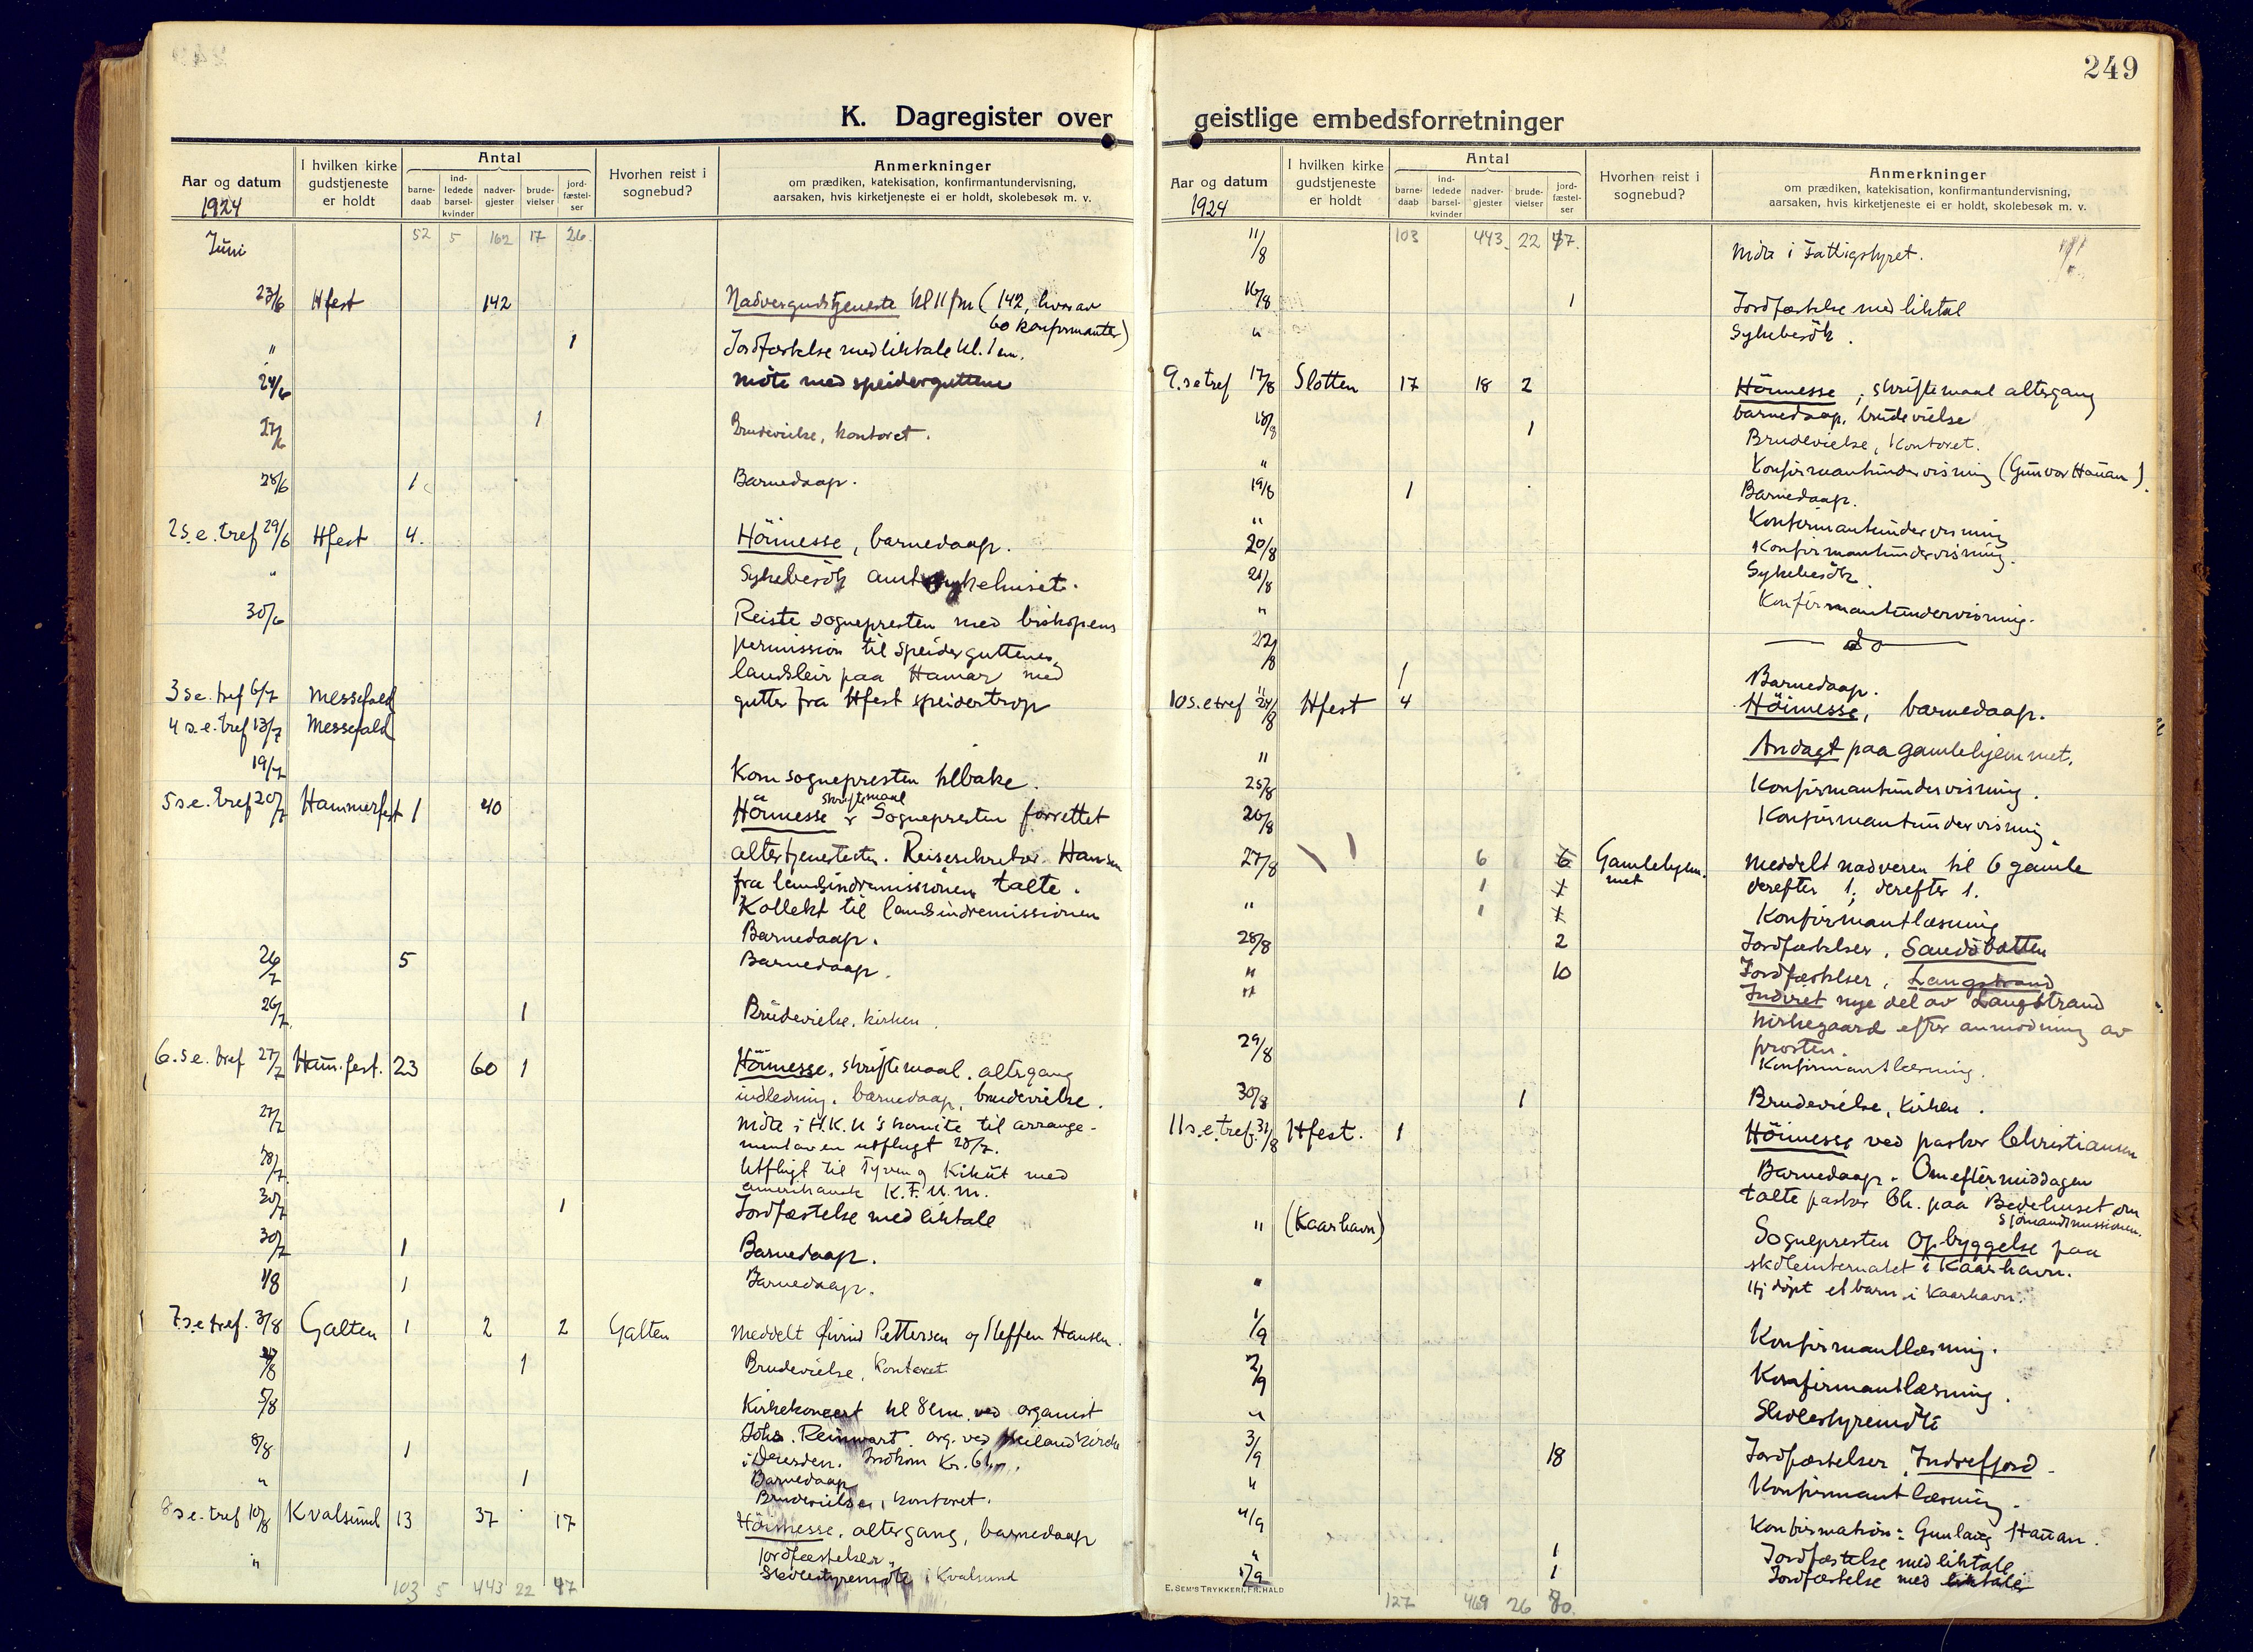 249
K. Dagregister over
geistlige embedsforretninger
Aar og datum
1924
I hvilken kirke gudstjeneste er holdt
Antal
barne-daab
ind-ledede barsel-kvinder
nadver-gjester
brude-vielser
jord-fæstel-ser
Hvorhen reist i sognebud?
Anmerkninger
om prædiken, katekisation, konfirmantundervisning,
aarsaken, hvis kirketjeneste ei er holdt, skolebesøk m. v.
Juni 52 5 162 17 26.
23/6 Hfest 142 Nadvergudstjeneste kl 11 fm (142, hvorav
60 konfirmanter)
" 1 Jordfæstelse med liktale kl. 1 em.
24/6 Møte med speiderguttene
27/6 1 Brudevielse, kontoret.
28/6 1 Barnedaap.
2 s.e. tref 29/6 Hfest 4. Höimesse, barnedaap.
" Sykebesök amtssykehuset.
30/6 Reiste sognepresten med biskopens
permission til speiderguttenes
landsleir paa Hamar med
3 s.e. tref 6/7 Messefald gutter fra Hfest speidertrop
4 s.e. tref 13/7 Messefald
19/7 Kom sognepresten tilbake.
skriftemaal
5 s.e. tref 20/7 Hammerfest 1 40 Höimesse Sognepresten forrettet
altertjenesten. Reisesekretær Hansen
fra landsindremissionen talte.
Kollekt til landsindremissionen
Barnedaap.
26/7 5 Barnedaap.
26/7 1 Brudevielse, kirken.
6. s.e. tref 27/7 Ham.fest. 23 60 1 Höimesse, skriftemaal, altergang
indledning, barnedaap, brudevielse.
27/7 Møte i H.K.U's komite til arrange-
ment av en utflugt 28/7.
28/7 Utflugt til Tyven og Kikut med
amerikansk K.F.U.M.
30/7 1 Jordfæstelse med liktale
30/7 1 Barnedaap.
1/8 1 Barnedaap.
7. s.e. tref. 3/8 Galten 1 2 2 Galten Meddelt Øivind Pettersen og Steffen Hansen.
/8 1 Brudevielse, kontoret
5/8 Kirkekoncert kl 8 em. ved organist
Johs. Reinwart org. ved Heilandkirche
8/8 1 i Dresden. Indkom Kr.
Barnedaap
" 1 Brudevielse, kontoret.
8 s.e. tref 10/8 Kvalsund 13 37 17 Höimesse, altergang, barnedaap
jordfæstelser.
" Skolestyremøte i Kvalsund
103 5 443 22 47
Aar og datum
1924
I hvilken kirke gudstjeneste er holdt
Antal
barne-daab
ind-ledede barsel-kvinder
nadver-gjester
brude-vielser
jord-fæstel-ser
Hvorhen reist i sognebud?
Anmerkninger
om prædiken, katekisation, konfirmantundervisning,
aarsaken, hvis kirketjeneste ei er holdt, skolebesøk m. v.
11/8 103 443. 22 47. Møte i Fattigstyret.
16/8 1 Jordfæstelse med liktal
" Sykebesök.
9. s.e tref 17/8 Slotten 17 18 2 Höimesse, skriftemaal altergang
barnedaap, brudevielse
18/8 1 Brudevielse, Kontoret.
" Konfirmantundervisning (Gunvor Hauan).
19/8 1 Barnedaap.
" Konfirmantundervisning
20/8 Konfirmantundervisning.
21/8 Sykebesök.
" Konfirmantundervisning.
22/8 — do —
" 1 Barnedaap.
10 s.e tref 24/8 Hfest 4 Höimesse, barnedaap.
" Andagt paa gamlehjemmet.
25/8 Konfirmantundervisning.
26/8 Konfirmantundervisning
27/8 6 6 Gamlehjem-
met Meddelt nadveren til 6 gamle
1 1 derefter 1, derefter 1.
" 1 1 Konfirmantlæsning
28/8 2 Jordfæstelser, Sandöbotten
" 10 Jordfæstelser, Langstrand
" Indviet nye del av Langstrand
kirkegaard efter anmodning av
prosten.
29/8 Konfirmantlæsning.
30/8 1 Brudevielse, Kirken.
11 s.e. tref. 31/8 Hfest. 1 Höimesse ved pastor Christiansen
Barnedaap. Om eftermiddagen
talte pastor Ch. paa Bedehuset om
Sjömandsmissionen.
" (Kaarhavn) Sognepresten Opbyggelse paa
skoleinternatet i Kaarhavn.
" Hj. döpt et barn i Kaarhavn.
1/9 Konfirmantlæsning.
2/9 Konfirmantlæsning.
" Skolestyremøte
3/9 18 Jordfæstelser, Indrefjord.
" Konfirmantlæsning.
4/9 Konfirmation: Gunlaug Hauan.
" 1 Jordfæstelse med liktale
/9 1 Jordfæstelse med liktale
E. SEM'S TRYKKERI, FR.HALD
127 469 26 80.